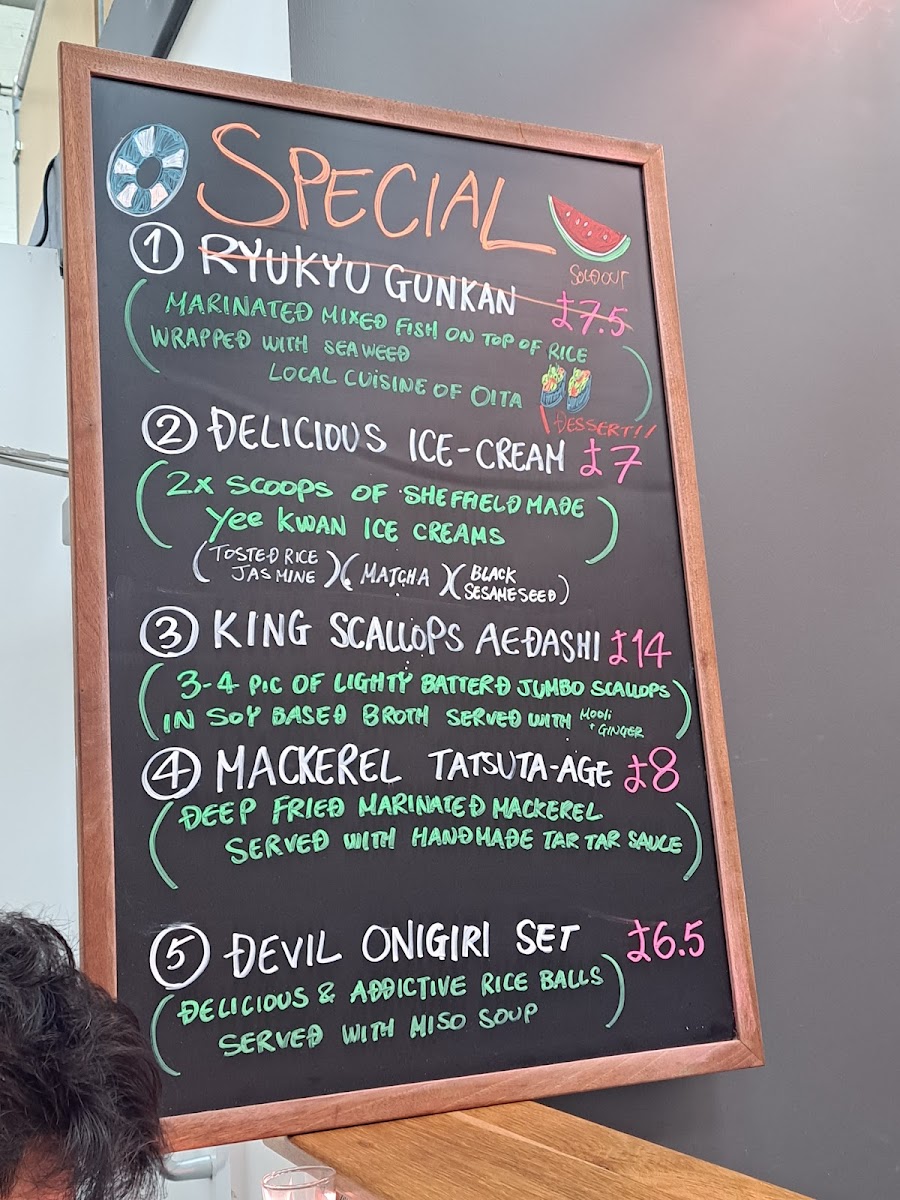 SPECIAL
SOLD OUT
① RYUKYU GUNKAN £7.5
(MARINATED MIXED FISH ON TOP OF RICE
WRAPPED WITH SEAWEED
LOCAL CUISINE OF OITA)
DESSERT!!
② DELICIOUS ICE-CREAM £7
(2X SCOOPS OF SHEFFIELD MADE
Yee KWAN ICE CREAMS)
(TOSTED RICE JASMINE) (MATCHA) (BLACK SESAME SEED)
③ KING SCALLOPS AEDASHI £14
(3-4 PIC OF LIGHTY BATTERD JUMBO SCALLOPS
IN SOY BASED BROTH SERVED WITH MOOLI + GINGER)
④ MACKEREL TATSUTA-AGE £8
(DEEP FRIED MARINATED MACKEREL
SERVED WITH HANDMADE TAR TAR SAUCE)
⑤ DEVIL ONIGIRI SET £6.5
(DELICIOUS & ADDICTIVE RICE BALLS
SERVED WITH MISO SOUP)